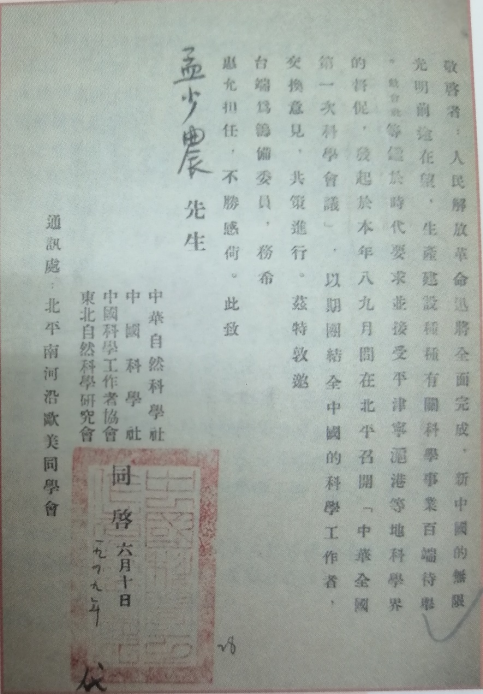 敬啓者：人民解放革命迅將全面完成，新中國的無限
光明前途在望，生產建設種種有關科學事業百端待舉
，敝會社等鑑於時代要求並接受平津寧滬港等地科學界
的督促，發起於本年八九月間在北平召開「中華全國
第一次科學會議」，以期團結全中國的科學工作者，
交換意見，共策進行。茲特敦邀
台端爲籌備委員，務希
惠允担任，不勝感荷。此致
孟少農 先生
中華自然科學社
中國科學社
中國科學工作者協會
東北自然科學研究會
同啓 六月十日
一九四九年
通訊處：北平南河沿歐美同學會
28